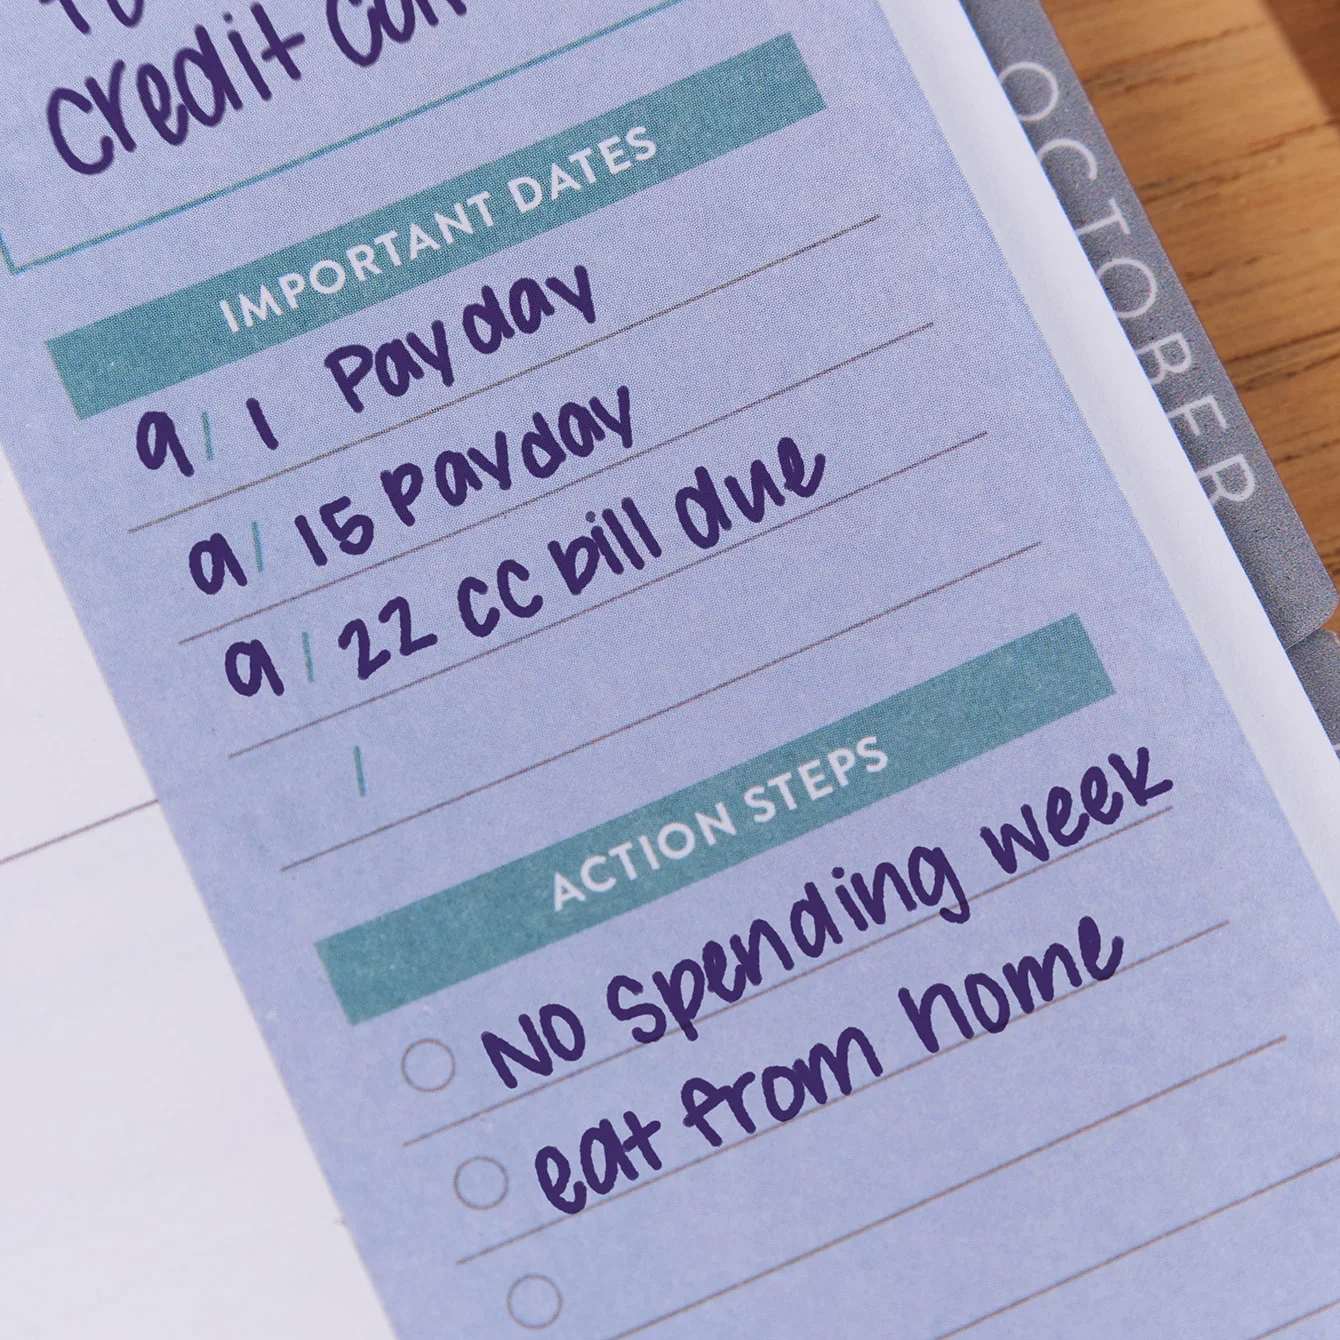 credit
IMPORTANT DATES
9/1 Payday
9/15 Payday
9/22 CC bill due
/
ACTION STEPS
NO Spending week
eat from home
OCTOBER